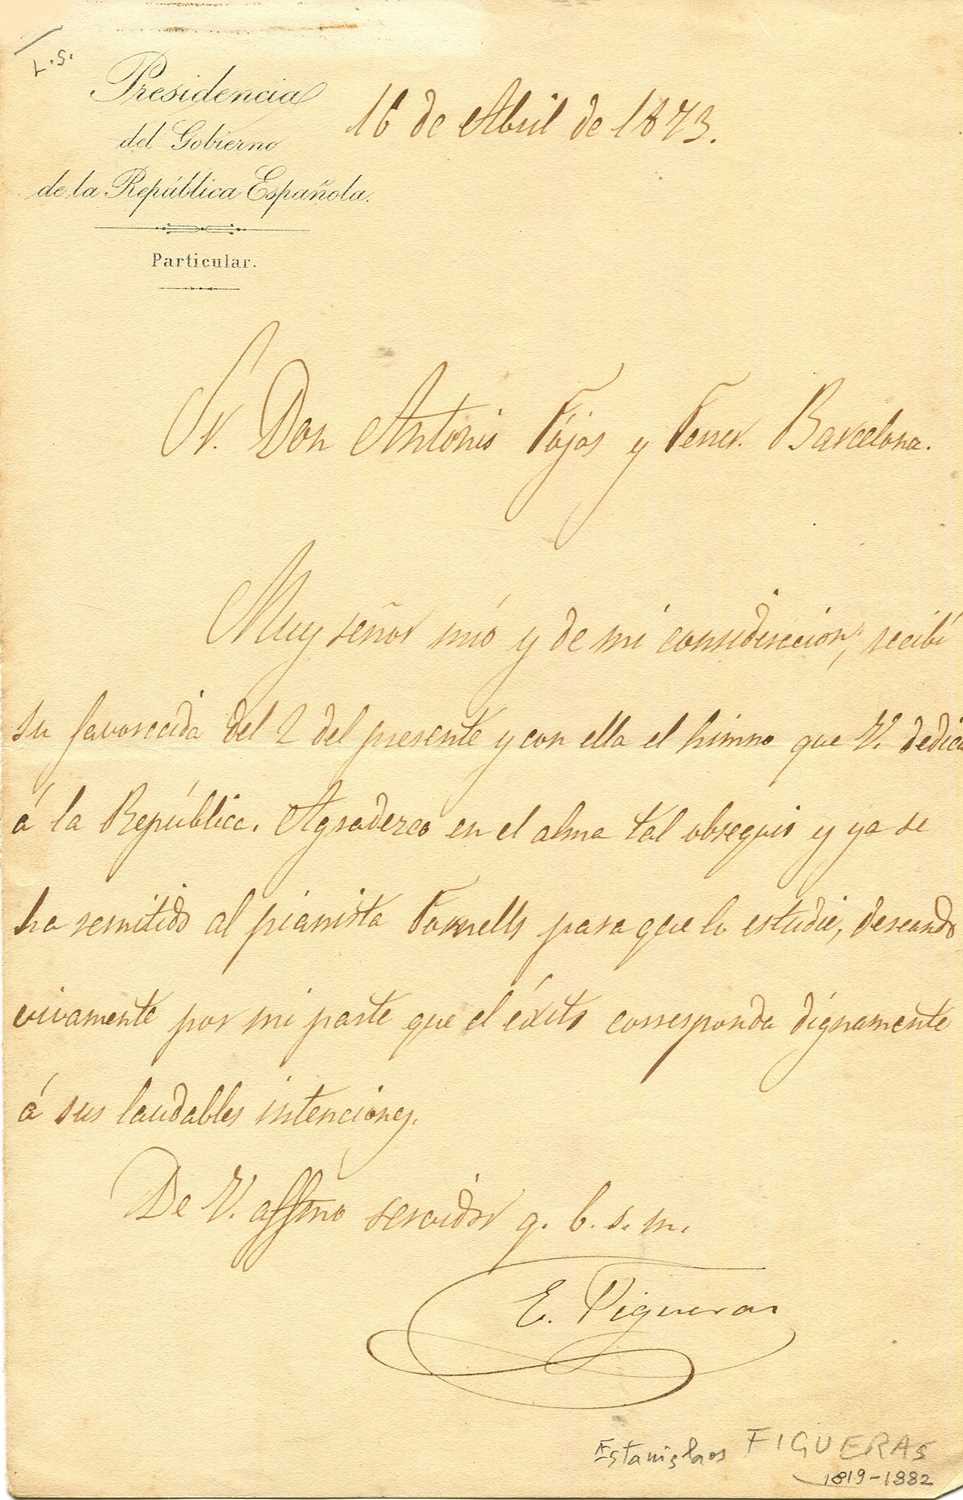 L.S.
Presidencia
del Gobierno
de la República Española.
Particular.
16 de Abril de 1873.
Sr. Don Antonio Fójos y Ferrer. Barcelona.
Muy señor mió y de mi consideracion; recibí
su favorecida del 2 del presente y con ella el himno que V. dedica
á la República. Agradezco en el alma tal obsequio y ya se
ha remitido al pianista para que lo estudie, deseando
vivamente por mi parte que el éxito corresponda dignamente
á sus laudables intenciones.
De V. affmo servidor q. b. s. m.
E. Figueras
Estanislaos FIGUERAS
1819-1882